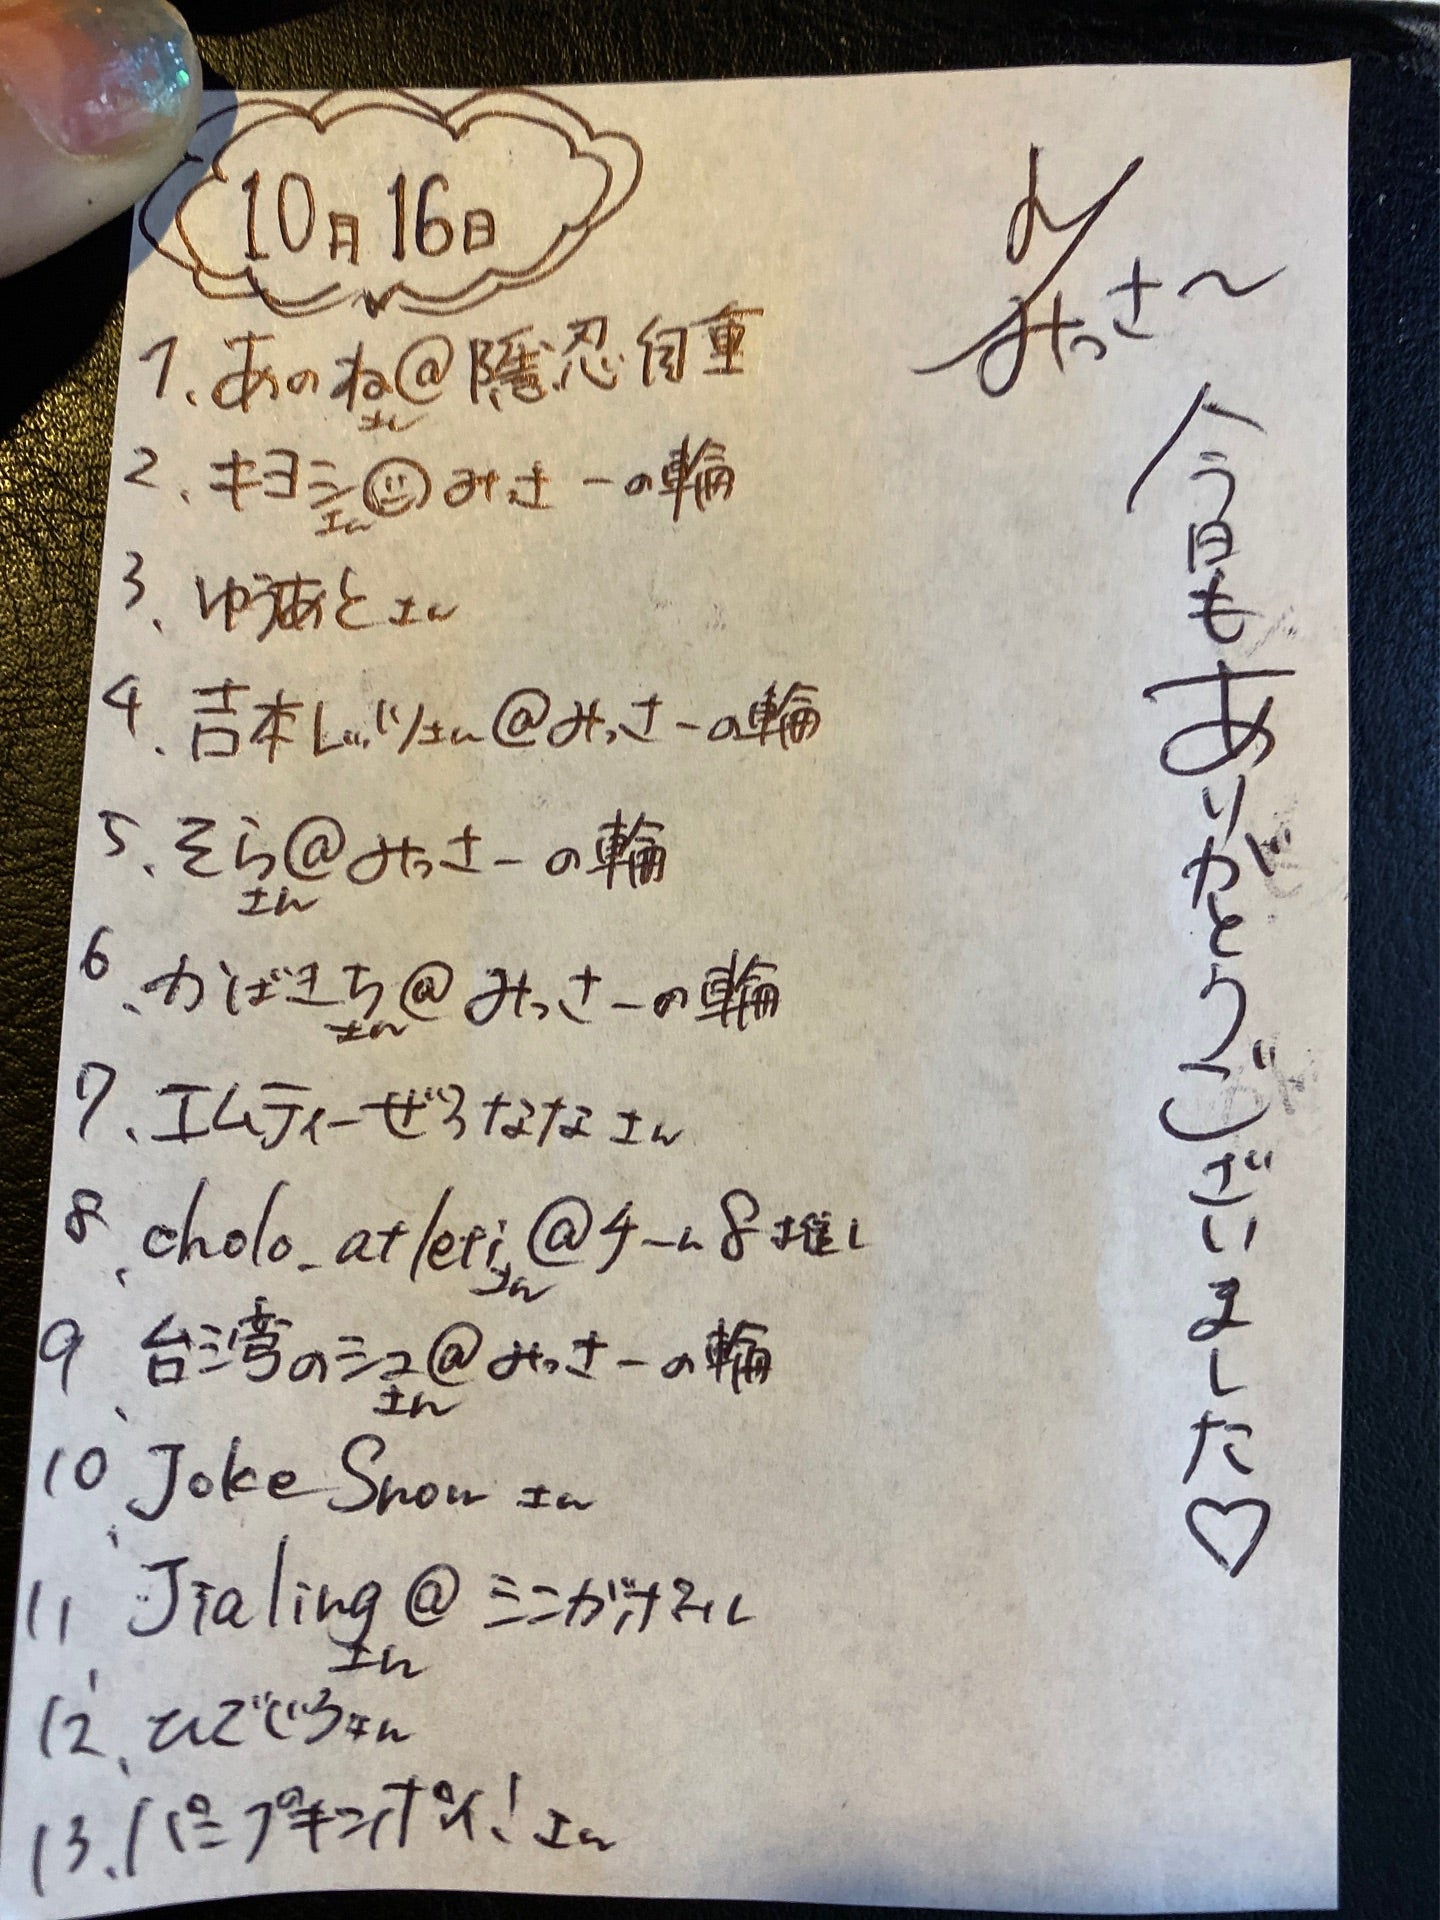 10月16日
1、あのねさん@隠忍自重
2、キヨシさん みっさーの輪
3、ゆうあとさん
4、吉本レッジさん@みっさーの輪
5、そらさん@みっさーの輪
6、かばきちさん@みっさーの輪
7、エムティーぜろななさん
8、cholo_atletiさん@チーム8推し
9、台湾のシュさん@みっさーの輪
10、Joke Snowさん
11、Jialingさん@ミニガオスィし
12、ひでじろさん
13、パンプキンポイ!さん
みっさ〜
今日もありがとうございました♡